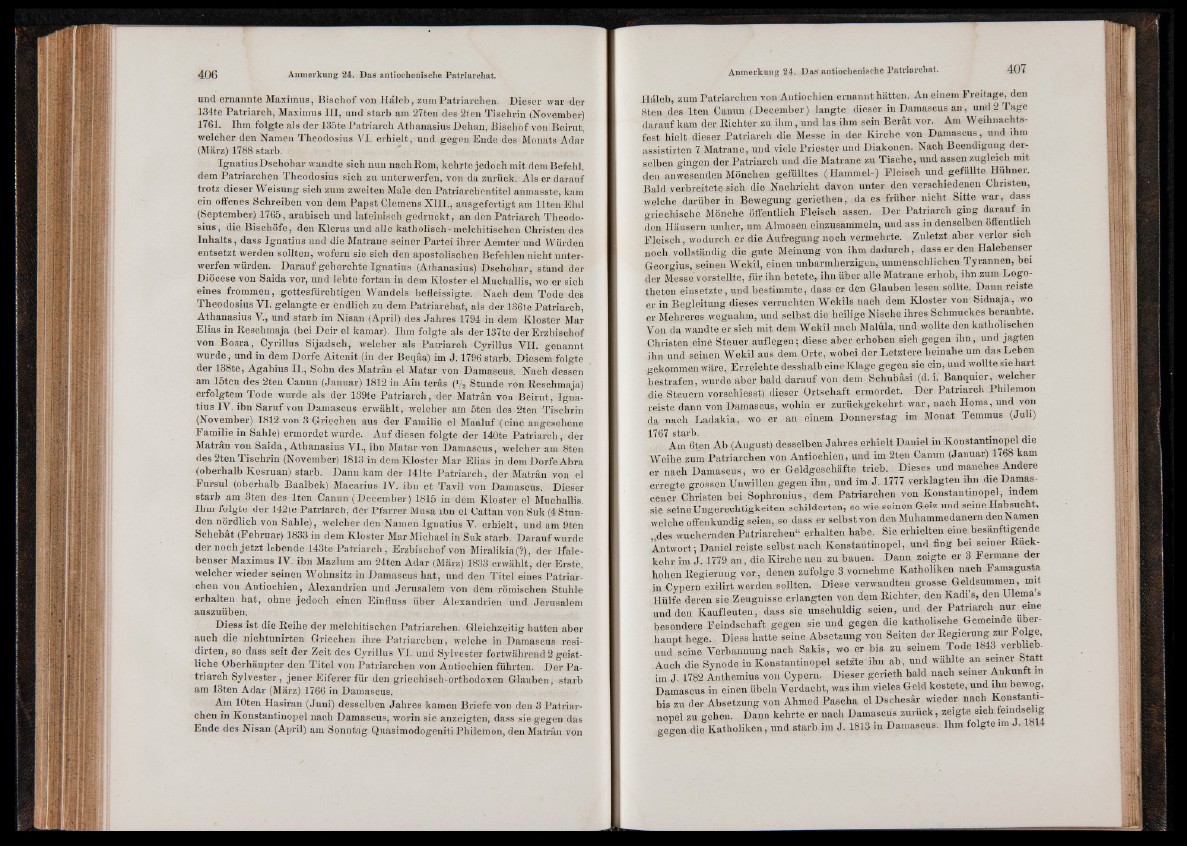 406 Anmerkung 24. Das antiochenische Patriarchat.
und ernannte Maximus, Bischof von Háleb, zum Patriarchen. Dieser war der
134te Patriarch, Maximus III, und starb am 27ten des 2ten Tischrin (November)
1761. Ihm folgte als der 135te Patriarch Athanasius Dehan, Bischof von Beirut,
welcher den Namen Theodosius VI. erhielt, und gegen Ende des Monats Adar
(März) 1788 starb.
Ignatius Dschohar wandte sich nun nach Rom, kehrte jedoch mit dem Befehl,
dem Patriarchen Theodosius sich zu unterwerfen, von da zurück. Als er darauf
trotz dieser Weisung sich zum zweiten Male den Patriarchentitel anmasste, kam
ein offenes Schreiben von dem Papst Clemens XIII., ausgefertigt am 11ten Elul
(September) 1765, arabisch und lateinisch gedruckt, an den Patriarch Theodo-
sius, die Bischöfe, den Klerus und alle katholisch-melchitischen Christen des
Inhalts, dass Ignatius und die Matrane seiner Partei ihrer Aemter und Würden
entsetzt werden sollten, wofern sie sich den apostolischen Befehlen nicht unter-
werfen würden. Darauf gehorchte Ignatius (Athanasius) Dschohar, stand der
Diöcese von Saida vor, und lebte fortan in dem Kloster el Muchallis, wo er sich
eines frommen, gottesfürchtigen Wandels befleissigte. Nach dem Tode des
Theodosius VI. gelangte er endlich zu dem Patriarchat, als der 136te Patriarch,
Athanasius V., und starb im Nisan (April) des Jahres 1794 in dem Kloster Mar
Elias in Reschmaja (bei Deir el kamar). Ihm folgte als der 137te der Erzbischof
von Bosra, Cyrillus Sijadsch, welcher als Patriarch Cyrillus VII. genannt
wurde, und in dem Dorfe Aitenit (in der Beqâa) im J. 1796 starb. Diesem folgte
der 138te, Agabius II., Sohn des Matrân el Matar von Damascus. Nach dessen
am 15ten des 2ten Canun (Januar) 1812 in Ain terâs (½ Stunde von Reschmaja)
erfolgtem Tode wurde als der 139te Patriarch, der Matrân von Beirut, Igna-
tius IV. ibn Saruf von Damascus erwählt, welcher am 5ten des 2ten Tischrin
(November) 1812 von 3 Griechen aus der Familie el Maaluf (eine angesehene
Familie in Sahle) ermordet wurde. Auf diesen folgte der 140te Patriarch, der
Matrân von Saida, Athanasius VI., ibn Matar von Damascus, welcher am 8ten
des 2ten Tischrin (November) 1813 in dem Kloster Mar Elias in dem Dorfe Abra
(oberhalb Kesruan) starb. Dann kam der 141te Patriarch, der Matrân von el
Fursul (oberhalb Baalbek) Macarius IV. ibn et Tavil von Damascus. Dieser
starb am 3ten des 1ten Canun (December) 1815 in dem Kloster el Muchallis.
Ihm folgte der 142te Patriarch, der Pfarrer Musa ibn el Cattan von Suk (4 Stun-
den nördlich von Sahle), welcher den Namen Ignatius V. erhielt, und am 9ten
Schebât (Februar) 1833 in dem Kloster Mar Michael in Suk starb. Darauf wurde
der noch jetzt lebende 143te Patriarch, Erzbischof von Miralikia(?), der Hale-
benser Maximus IV. ibn Mazlum am 24ten Adar (März) 1833 erwählt, der Erste,
welcher wieder seinen Wohnsitz in Damascus hat, und den Titel eines Patriar-
chen von Antiochien, Alexandrien und Jerusalem von dem römischen Stuhle
erhalten hat, ohne jedoch einen Einfluss über Alexandrien und Jerusalem
auszuüben.
Diess ist die Reihe der melchitischen Patriarchen. Gleichzeitig hatten aber
auch die nichtunirten Griechen ihre Patriarchen, welche in Damascus resi-
dirten, so dass seit der Zeit des Cyrillus VI. und Sylvester fortwährend 2 geist-
liche Oberhäupter den Titel von Patriarchen von Antiochien führten. Der Pa-
triarch Sylvester, jener Eiferer für den griechisch-orthodoxen Glauben, starb
am 13ten Adar (März) 1766 in Damascus.
Am 10ten Hasiran (Juni) desselben Jahres kamen Briefe von den 3 Patriar-
chen in Konstantinopel nach Damascus, worin sie anzeigten, dass sie gegen das
Ende des Nisan (April) am Sonntag Quasimodogeniti Philemon, den Matrân von
Anmerkung 24. Das antiochenische Patriarchat. 407
Háleb, zum Patriarchen von Antiochien ernannt hätten. An einem Freitage, den
8ten des 1ten Canun (December) langte dieser in Damascus an, und 2 Tage
darauf kam der Richter zu ihm, und las ihm sein Berât vor. Am Weihnachts-
fest hielt dieser Patriarch die Messe in der Kirche von Damascus, und ihm
assistirten 7 Matrane, und viele Priester und Diakonen. Nach Beendigung der-
selben gingen der Patriarch und die Matrane zu Tische, und assen zugleich mit
den anwesenden Mönchen gefülltes (Hammel-) Fleisch und gefüllte Hühner.
Bald verbreitete sich die Nachricht davon unter den verschiedenen Christen,
welche darüber in Bewegung geriethen, da es früher nicht Sitte war, dass
griechische Mönche öffentlich Fleisch assen. Der Patriarch ging darauf in
den Häusern umher, um Almosen einzusammeln, und ass in denselben öffentlich
Fleisch, wodurch er die Aufregung noch vermehrte. Zuletzt aber verlor sich
noch vollständig die gute Meinung von ihm dadurch, dass er den Halebenser
Georgius, seinen Wekil, einen unbarmherzigen, unmenschlichen Tyrannen, bei
der Messe vorstellte, für ihn betete, ihn über alle Matrane erhob, ihn zum Logo-
theten einsetzte, und bestimmte, dass er den Glauben lesen sollte. Dann reiste
er in Begleitung dieses verruchten Wekils nach dem Kloster von Sidnaja, wo
er Mehreres wegnahm, und selbst die heilige Nische ihres Schmuckes beraubte.
Von da wandte er sich mit dem Wekil nach Malûla, und wollte den katholischen
Christen eine Steuer auflegen; diese aber erhoben sich gegen ihn, und jagten
ihn und seinen Wekil aus dem Orte, wobei der Letztere beinahe um das Leben
gekommen wäre. Er reichte desshalb eine Klage gegen sie ein, und wollte sie hart
bestrafen, wurde aber bald darauf von dem Schubâsi (d. i. Banquier, welcher
die Steuern vorschiesst) dieser Ortschaft ermordet. Der Patriarch Philemon
reiste dann von Damascus, wohin er zurückgekehrt war, nach Homs, und von
da nach Ladakia, wo er an einem Donnerstag im Monat Temmus (Juli)
1767 starb.
Am 6ten Ab (August) desselben Jahres erhielt Daniel in Konstantinopel die
Weihe zum Patriarchen von Antiochien, und im 2ten Canun (Januar) 1768 kam
er nach Damascus, wo er Geldgeschäfte trieb. Dieses und manches Andere
erregte grossen Unwillen gegen ihn, und im J. 1777 verklagten ihn die Damas-
cener Christen bei Sophronius, dem Patriarchen von Konstantinopel, indem
sie seine Ungerechtigkeiten schilderten, so wie seinen Geiz und seine Habsucht,
welche offenkundig seien, so dass er selbst von den Muhammedanern den Namen
„des wuchernden Patriarchen“ erhalten habe. Sie erhielten eine besänftigende
Antwort; Daniel reiste selbst nach Konstantinopel, und fing bei seiner Rück-
kehr im J. 1779 an, die Kirche neu zu bauen. Dann zeigte er 3 Fermane der
hohen Regierung vor, denen zufolge 3 vornehme Katholiken nach Famagusta
in Cypern exilirt werden sollten. Diese verwandten grosse Geldsummen, mit
Hülfe deren sie Zeugnisse erlangten von dem Richter, den Kadi's, den Ulema's
und den Kaufleuten, dass sie unschuldig seien, und der Patriarch nur eine
besondere Feindschaft gegen sie und gegen die katholische Gemeinde über-
haupt hege. Diess hatte seine Absetzung von Seiten der Regierung zur Folge,
und seine Verbannung nach Sakis, wo er bis zu seinem Tode 1843 verblieb.
Auch die Synode in Konstantinopel setzte ihn ab, und wählte an seiner Statt
im J. 1782 Anthemius von Cypern. Dieser gerieth bald nach seiner Ankunft in
Damascus in einen übeln Verdacht, was ihm vieles Geld kostete, und ihn bewog,
bis zu der Absetzung von Ahmed Pascha el Dschesâr wieder nach Konstanti-
nopel zu gehen. Dann kehrte er nach Damascus zurück, zeigte sich feindselig
gegen die Katholiken, und starb im J. 1813 in Damascus. Ihm folgte im J. 1814